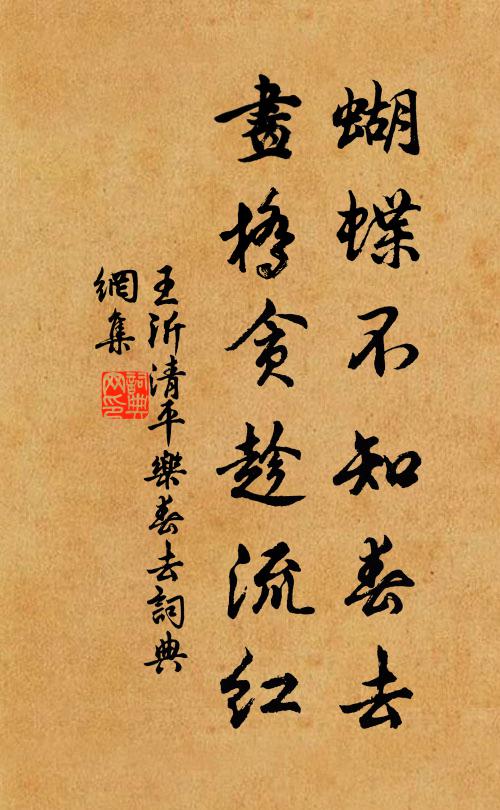 蝴蝶不知春去
畫橋貪趁流紅
王沂清平樂春去詞典
網集
詞典
网印